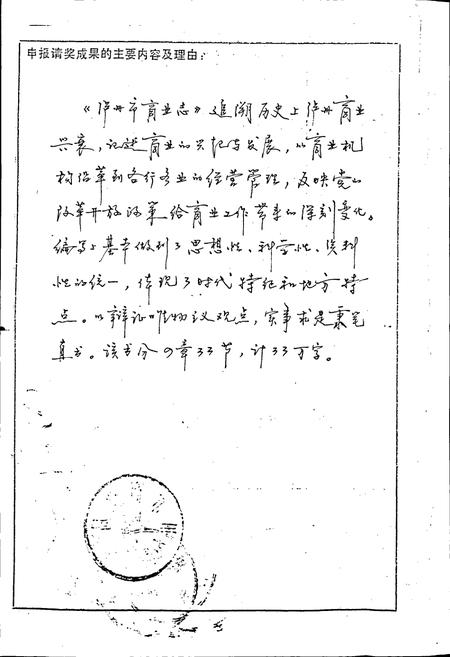 申报请奖成果的主要内容及理由：
《泸州市商业志》追溯历史上泸州商业
兴衰，记述商业的兴起与发展，以商业机
构沿革到各行各业的经营管理，反映党的
改革开放政策给商业工作带来的深刻变化。
编写上基本做到了思想性、科学性、资料
性的统一，体现了时代特征和地方特
点。以辩证唯物主义观点，实事求是秉笔
直书。该书分9章33节，计33万字。